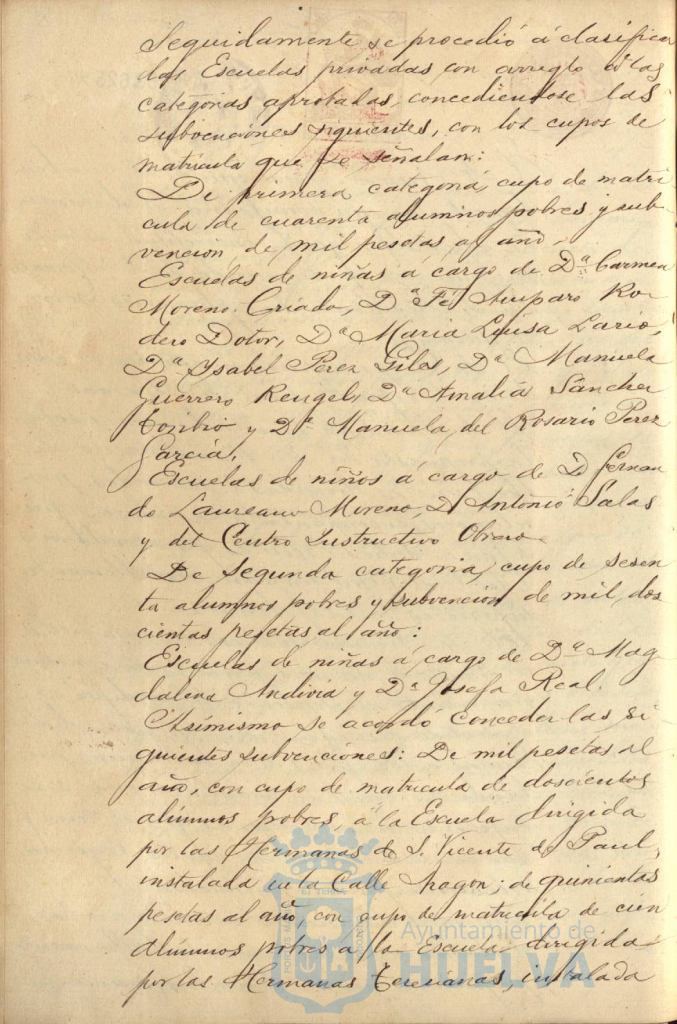 Seguidamente se procedió á clasificar
las Escuelas privadas con arreglo á las
categorias aprobadas, concediendose las
subvenciones siguientes, con los cupos de
matricula que se señalan:
De primera categoria, cupo de matri-
cula de cuarenta alumnos pobres y sub-
vencion de mil pesetas al año.
Escuelas de niñas á cargo de Dª Carmen
Moreno Criado, Dª Fé Amparo Ro-
dero Dotor, Dª Maria Luisa Lario,
Dª Ysabel Perez Giles, Dª Manuela
Guerrero Rengel, Dª Amalia Sánchez
Toribio y Dª Manuela del Rosario Perez
Garcia.
Escuelas de niños á cargo de D. Fernan
do Laureano Moreno, D. Antonio Salas
y del Centro Instructivo Obrero.
De segunda categoria, cupo de sesen
ta alumnos pobres y subvencion de mil dos
cientas pesetas al año:
Escuelas de niñas á cargo de Dª Mag
dalena Andivia y Dª Josefa Real.
Asimismo se acordó conceder las si
guientes subvenciones: De mil pesetas al
año, con cupo de matricula de doscientos
alumnos pobres, á la Escuela dirigida
por las Hermanas de S. Vicente de Paul,
instalada en la Calle ; de quinientas
pesetas al año, con cupo de matricula de cien
alumnos pobres a la Escuela dirigida
por las Hermanas Teresianas, instalada
Ayuntamiento de
HUELVA